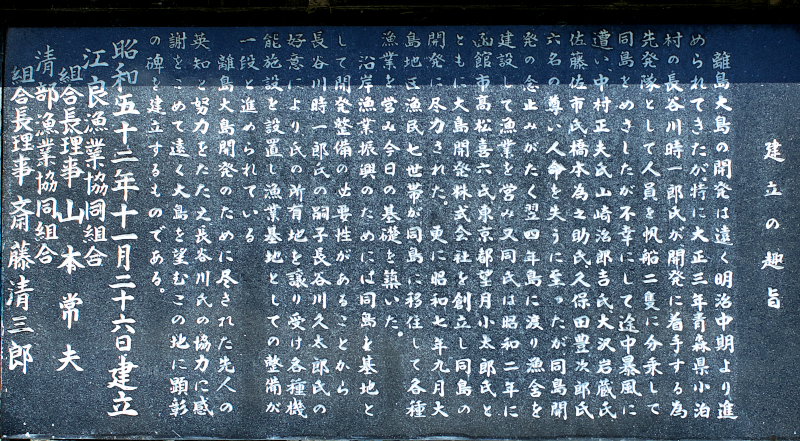 建立の趣旨
離島大島の開発は遠く明治中期より進
められてきたが特に大正三年青森県小泊
村の長谷川時一郎氏が開発に着手する為
先発隊として人員を帆船二隻に分乗して
同島をめざしたが不幸にして途中暴風に
遭い中村正夫氏山崎治郎吉氏大沢岩蔵氏
佐藤佐市氏橋本為之助氏久保田豊次郎氏
六名の尊い人命を失うに至ったが同島開
発の念止みがたく翌四年島に渡り漁舎を
建設して漁業を営み又同氏は昭和二年に
函館市高松喜六氏東京都望月小太郎氏と
ともに大島開発株式会社を創立し同島の
開発に尽力された。更に昭和七年九月大
島地区漁民七世帯が同島に移住して各種
漁業を営み今日の基礎を築いた。
沿岸漁業振興のためには同島を基地と
して開発整備の必要性があることから
長谷川時一郎氏の嗣子長谷川久太郎氏の
好意により氏の所有地を譲り受け各種機
能施設を設置し漁業基地としての整備が
一段と進められている
離島大島開発のために尽された先人の
英知と努力をたたえ長谷川氏の協力に感
謝をこめて遠く大島を望むこの地に顕彰
の碑を建立するものである。
昭和五十二年十一月二十六日建立
江良漁業協同組合
組合長理事 山本常夫
清部漁業協同組合
組合長理事 斎藤清三郎